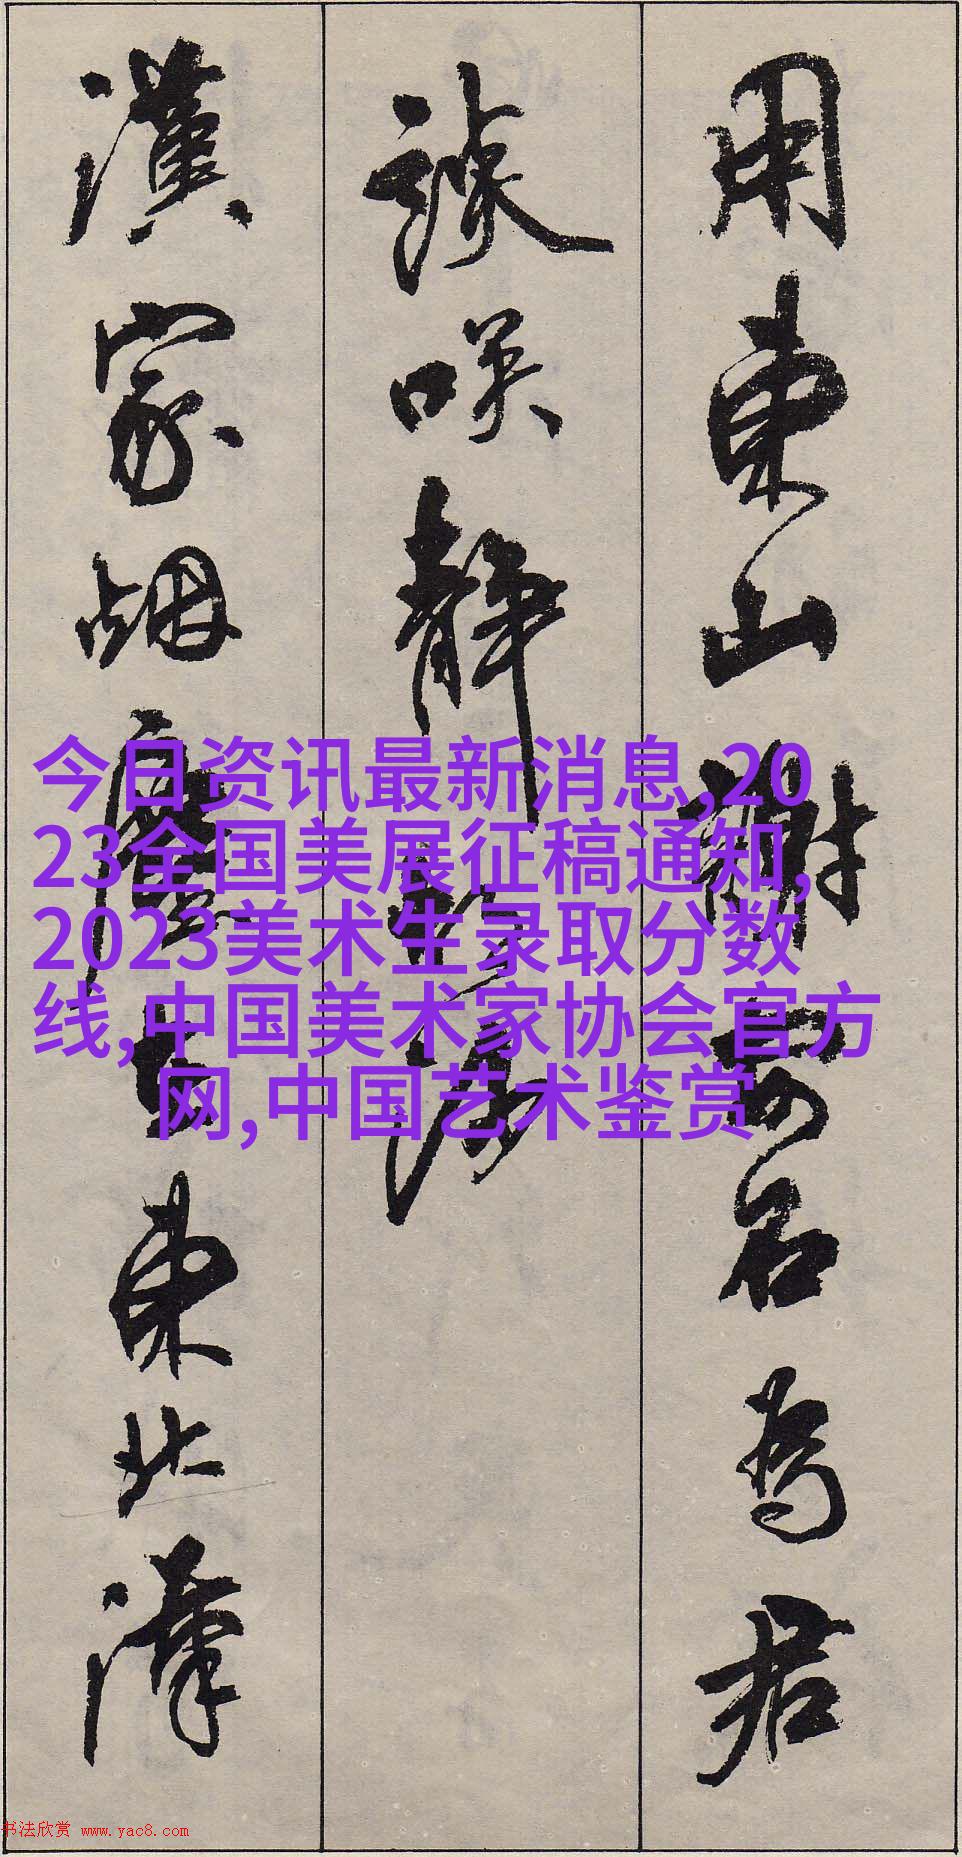 用東山謝安石為君
談咲静胡沙
漢家烟塵在東北漢
今日资讯最新消息,20
23全国美展征稿通知,
2023美术生录取分数
线,中国美术家协会官方
网,中国艺术鉴赏
书法欣赏 www.yac8.com